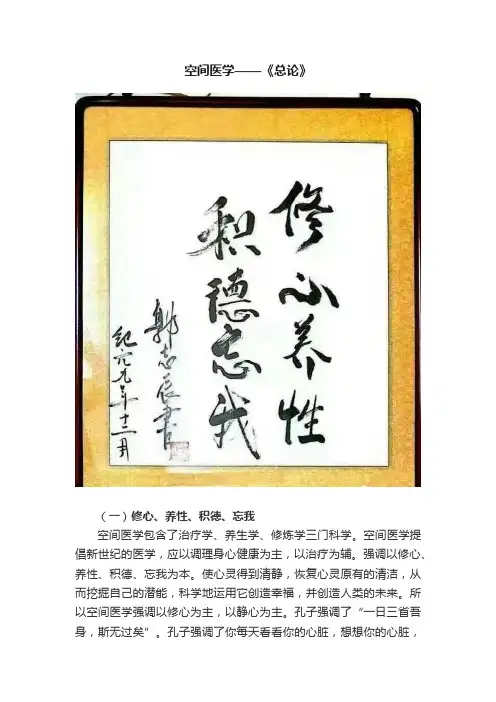 空间医学——《总论》
修心养性
积德忘我
郭志辰书
纪元九年月
（一）修心、养性、积德、忘我
空间医学包含了治疗学、养生学、修炼学三门科学。空间医学提
倡新世纪的医学，应以调理身心健康为主，以治疗为辅。强调以修心、
养性、积德、忘我为本。使心灵得到清静，恢复心灵原有的清洁，从
而挖掘自己的潜能，科学地运用它创造幸福，并创造人类的未来。所
以空间医学强调以修心为主，以静心为主。孔子强调了“一日三省吾
身，斯无过矣”。孔子强调了你每天看看你的心脏，想想你的心脏，